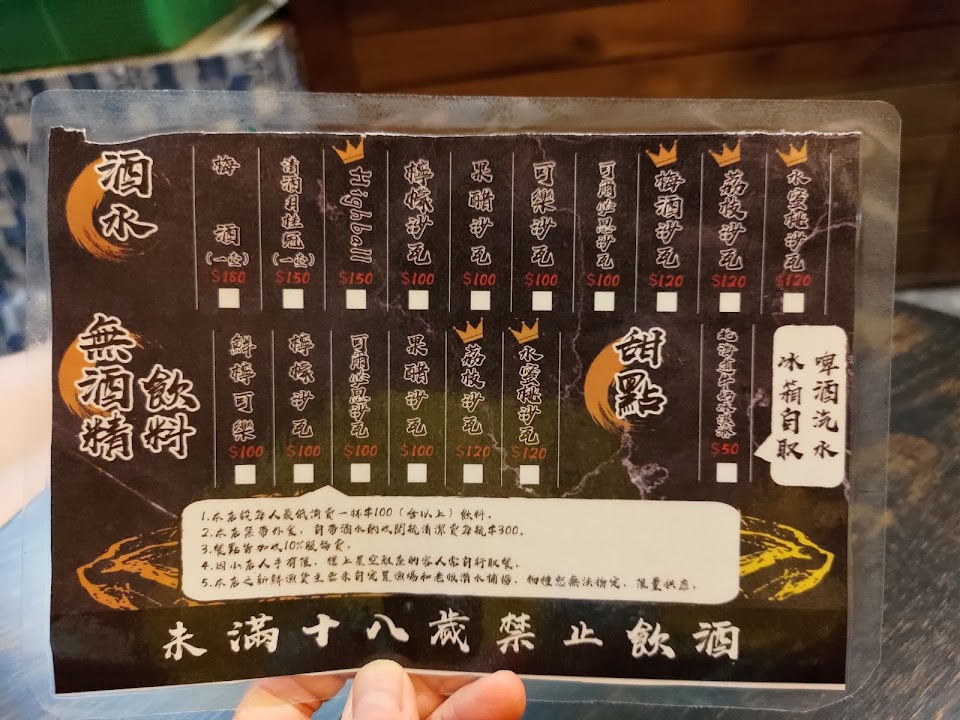 酒水
梅酒(一壺) $180
清酒月桂冠(一壺) $150
Highball $150
檸檬沙瓦 $100
果醋沙瓦 $100
可樂沙瓦 $100
可爾必思沙瓦 $100
梅酒沙瓦 $120
荔枝沙瓦 $120
水蜜桃沙瓦 $120
無酒精飲料
鮮檸可樂 $100
檸檬沙瓦 $100
可爾必思沙瓦 $100
果醋沙瓦 $100
荔枝沙瓦 $120
水蜜桃沙瓦 $120
甜點
北海道牛奶冰淇淋 $50
啤酒汽水
冰箱自取
1.本店設每人最低消費一杯$100(含以上)飲料。
2.本店禁帶外食，自帶酒水酌收開瓶清潔費每瓶$300。
3.餐點皆加收10%服務費。
4.因小店人手有限，樓上星空酒座的客人需自行取餐。
5.本店之新鮮漁貨主要來自定置漁場和老闆潛水捕撈，物種恕無法指定，限量供應。
未滿十八歲禁止飲酒